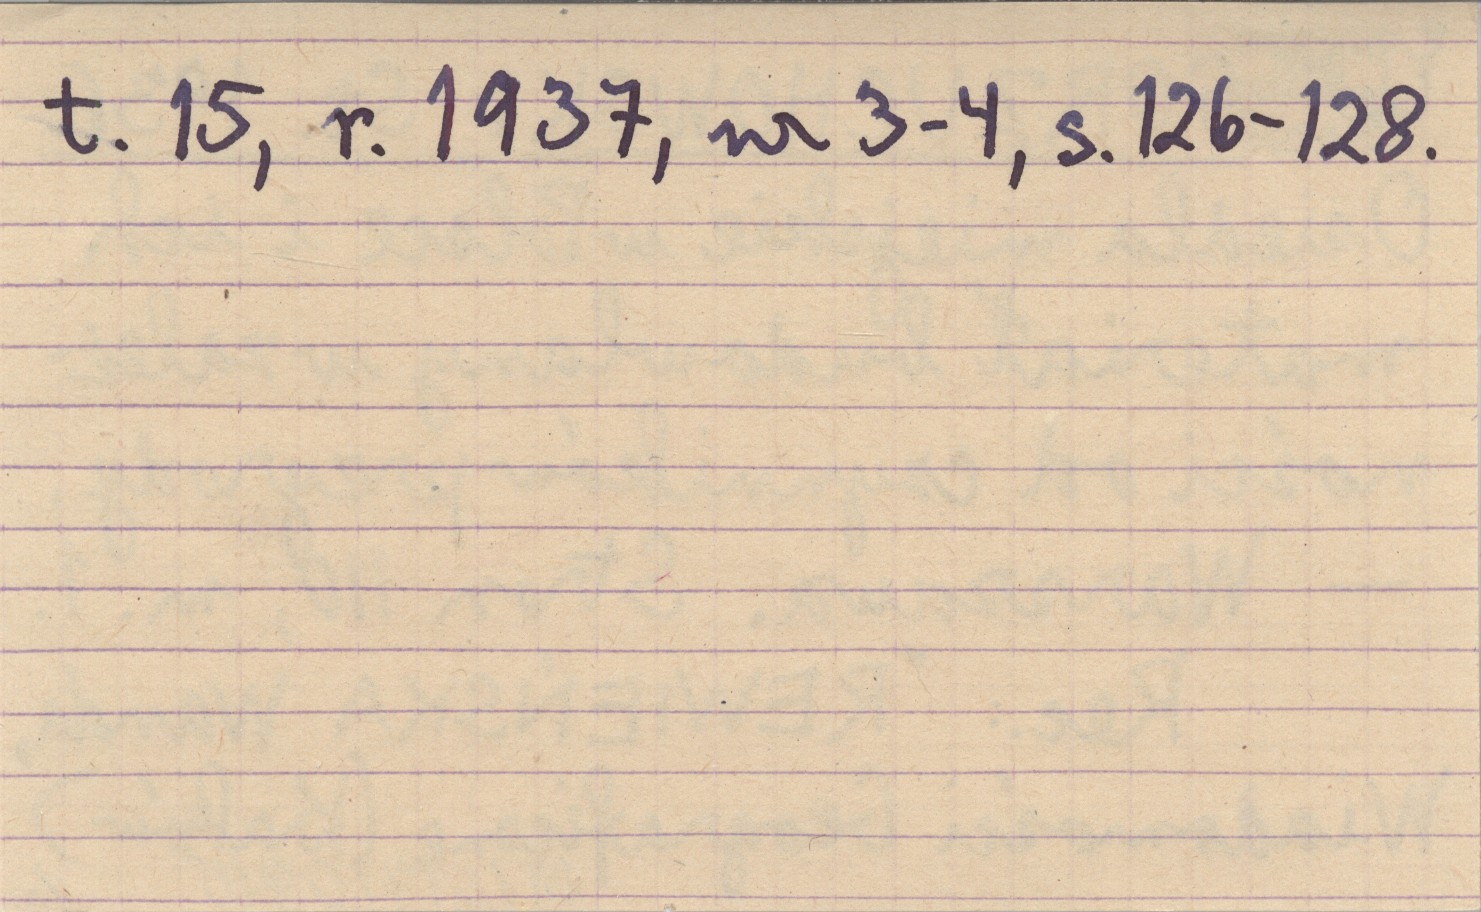 t. 15, r. 1937, nr 3-4, s. 126-128.